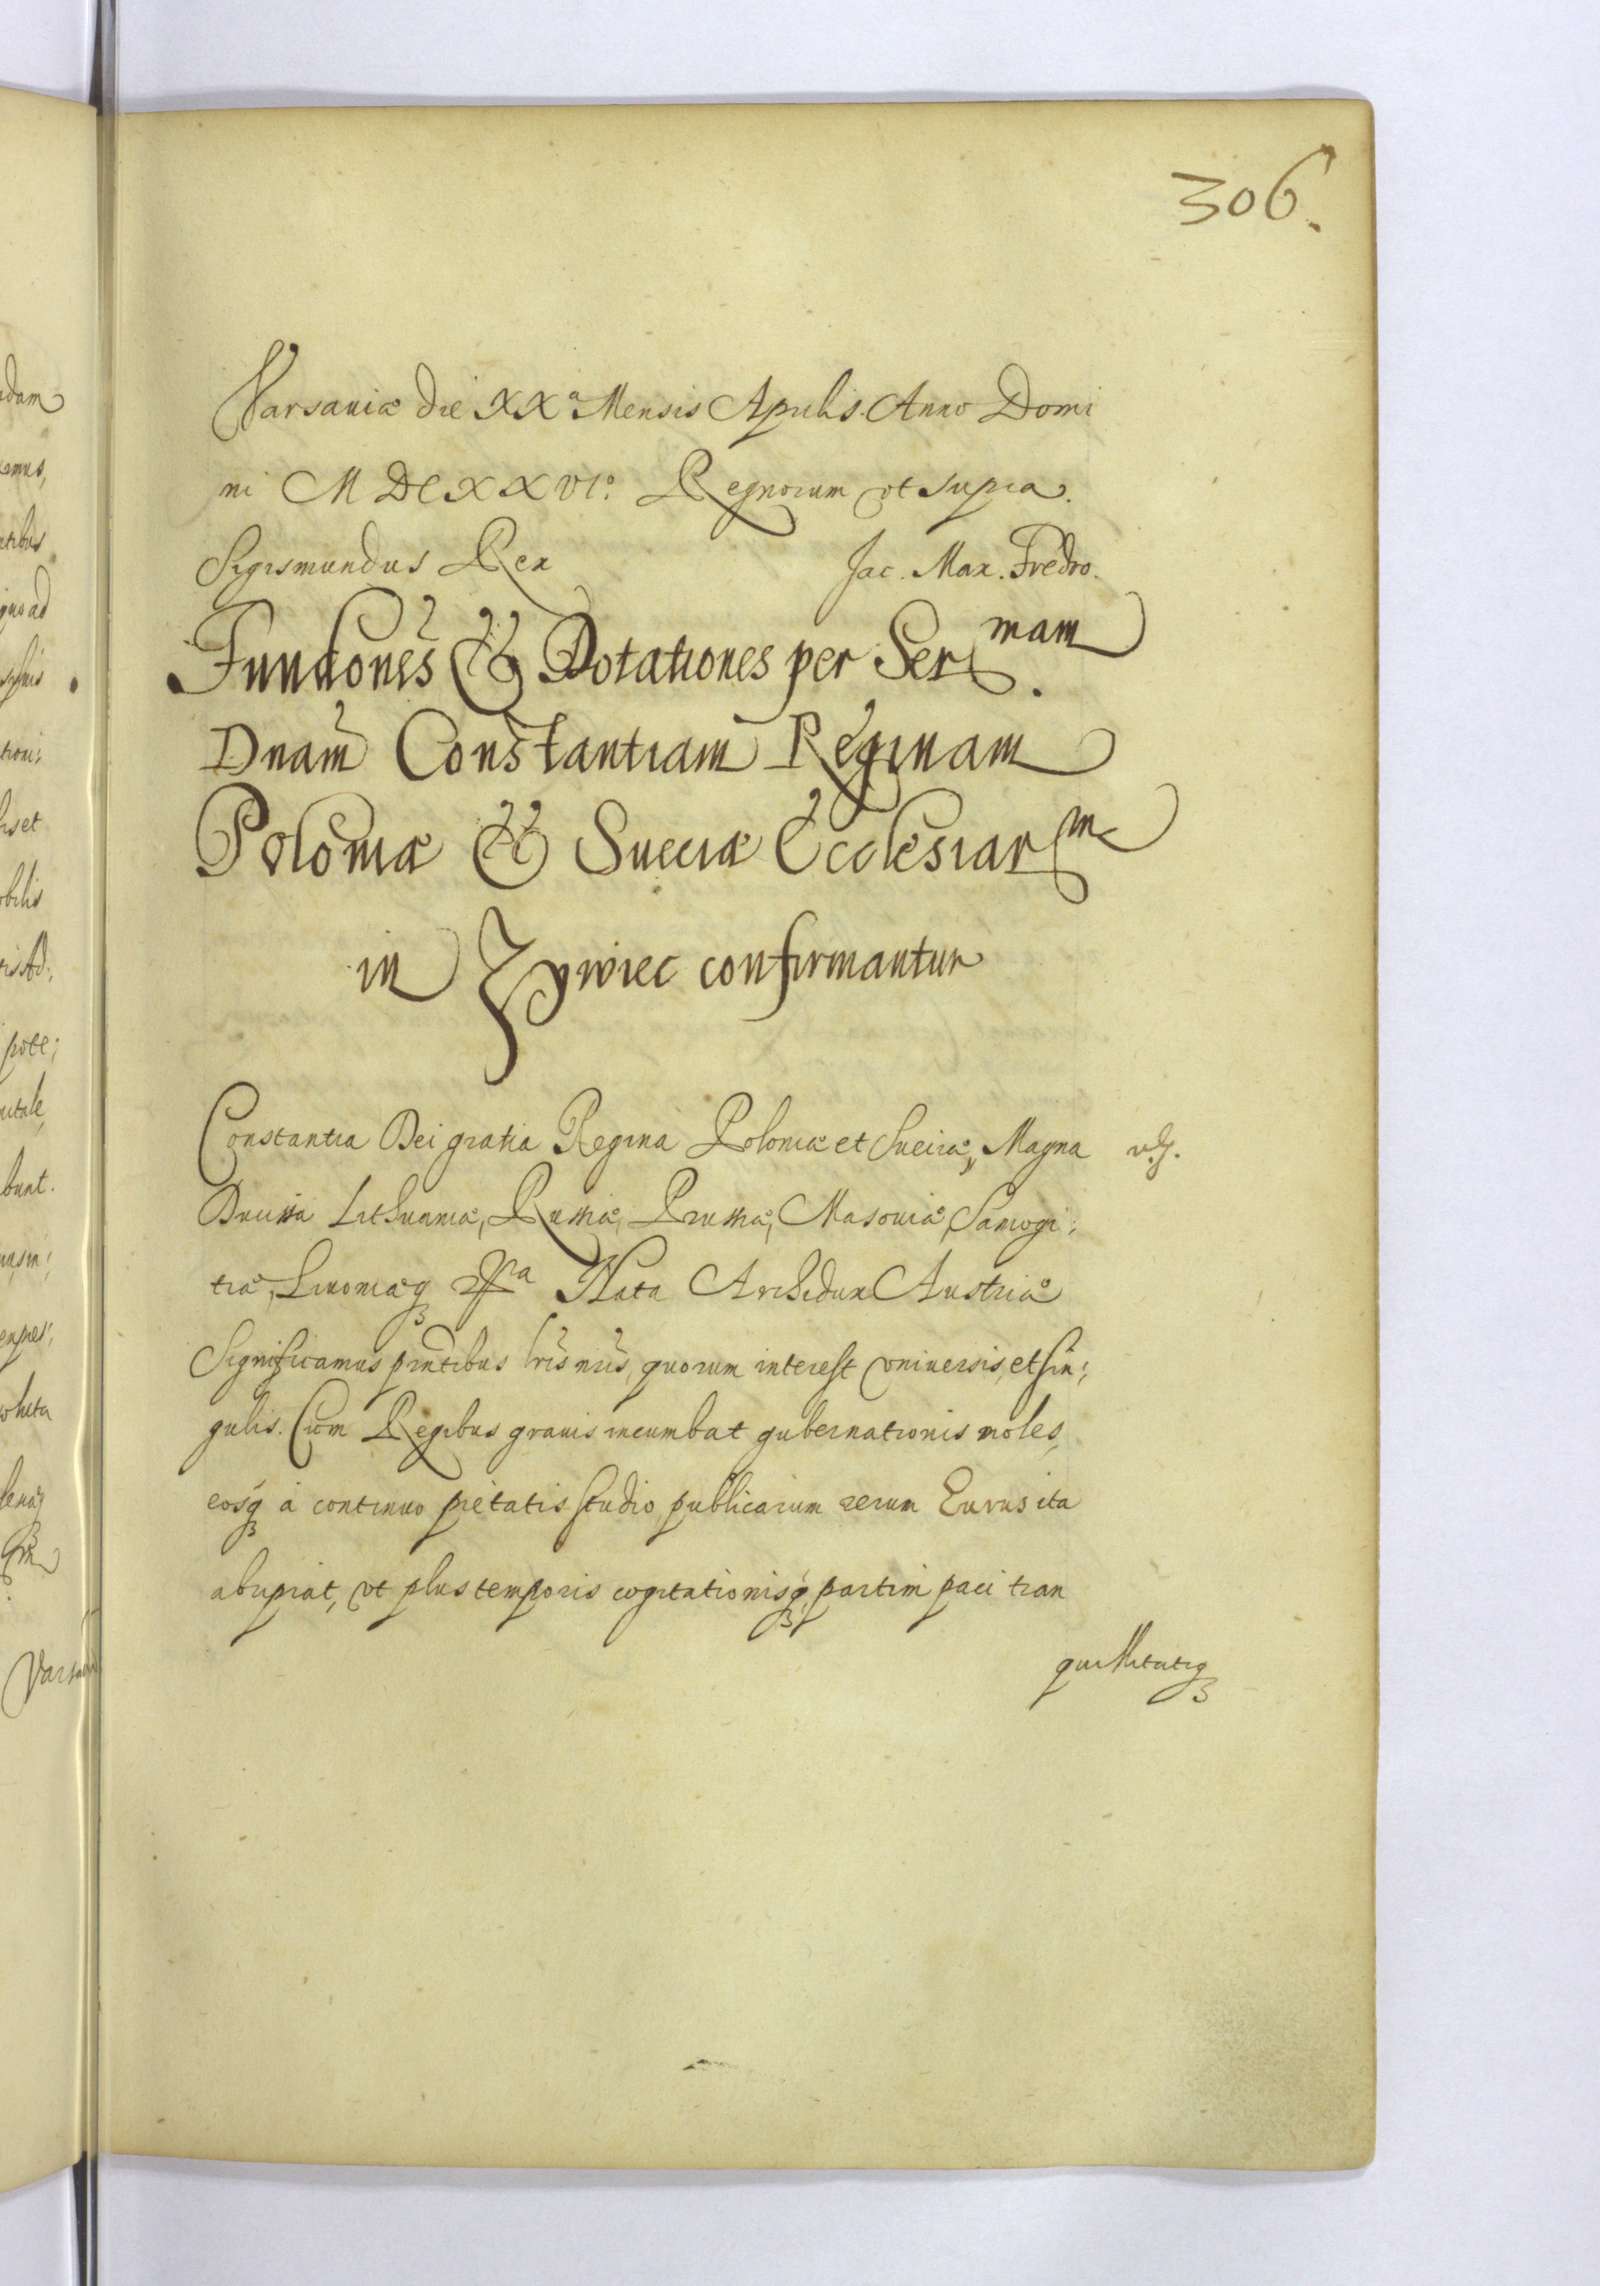 306.
Varsaviæ die XXa Mensis Aprilis. Anno Domi
ni MDCXXVIo. Regnorum vt supra.
Sigismundus Rex Jac. Max. Fredro.
Fundones & Dotationes per Sermam.
Dnam Constantiam Reginam
Poloniæ & Sueciæ Ecclesiarm
in Zywiec confirmantur
Constantia Dei gratia Regina Poloniæ et Sueciæ, Magna
Ducissa Lithuaniæ, Russiæ, Prussiæ, Masouiæ, Samogi:
tiæ, Liuoniæq Nata Archidux Austriæ
Significamus pntibus lris nris, quorum interest vniuersis, et sin:
gulis. Cum Regibus grauis incumbat gubernationis moles,
eosq à continuo pietatis studio publicarum rerum Cursus ita
abripiat, vt plus temporis cogitationisq, partim paci tran
quillitatiq